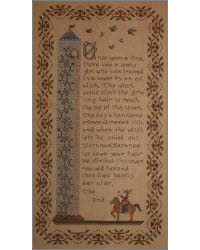 Once upon a time,
there was a lovely
girl who was trapped
in a tower by an evil
witch. The witch
would climb the girl's
long hair to reach
the top of the tower.
One day a handsome
prince
and when the witch
left he called out
"Rapunzel Rapunzel
let down your hair"
He climbed the tower
rescued her and
they lived happily
ever after.
The
End